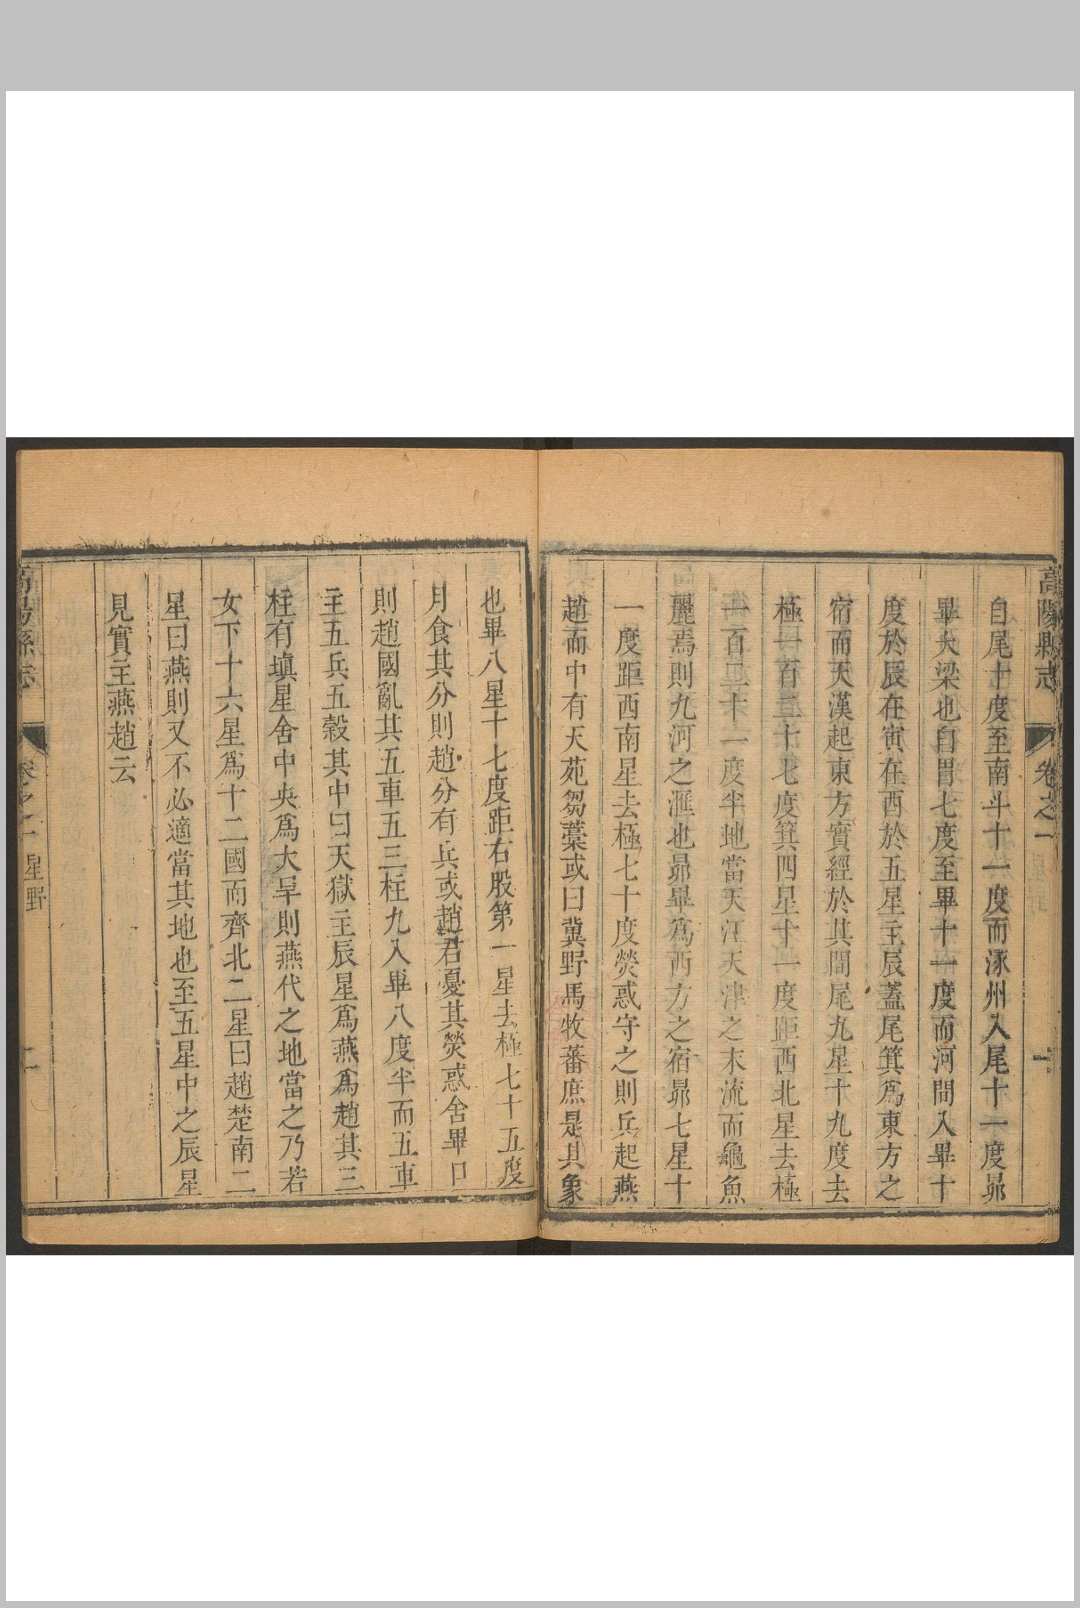 高陽縣志
卷之一
自尾十度至南斗十一度而涿州入尾十一度昴
畢大梁也自胃七度至畢十一度而河間入畢十
度於辰在寅在酉於五星主辰蓋尾箕為東方之
宿而天漢起東方實經於其間尾九星十九度去
極一百二十七度箕四星十一度距西北星去極
一百二十一度半地當天江天津之末流而龜魚
麗焉則九河之滙也昴畢為西方之宿昴七星十
一度距西南星去極七十度熒惑守之則兵起燕
趙而中有天苑芻藁或曰冀野馬牧蕃庶是其象
也畢八星十七度距右股第一星去極七十五度
月食其分則趙分有兵或趙君憂其熒惑舍畢口
則趙國亂其五車五三柱九入畢八度半而五車
主五兵五穀其中曰天獄主辰星為燕為趙其三
柱有填星舍中央為大旱則燕代之地當之乃若
女下十六星為十二國而齊北二星曰趙楚南二
星曰燕則又不必適當其地也至五星中之辰星
見實主燕趙云
高陽縣志
卷之一 星野
二